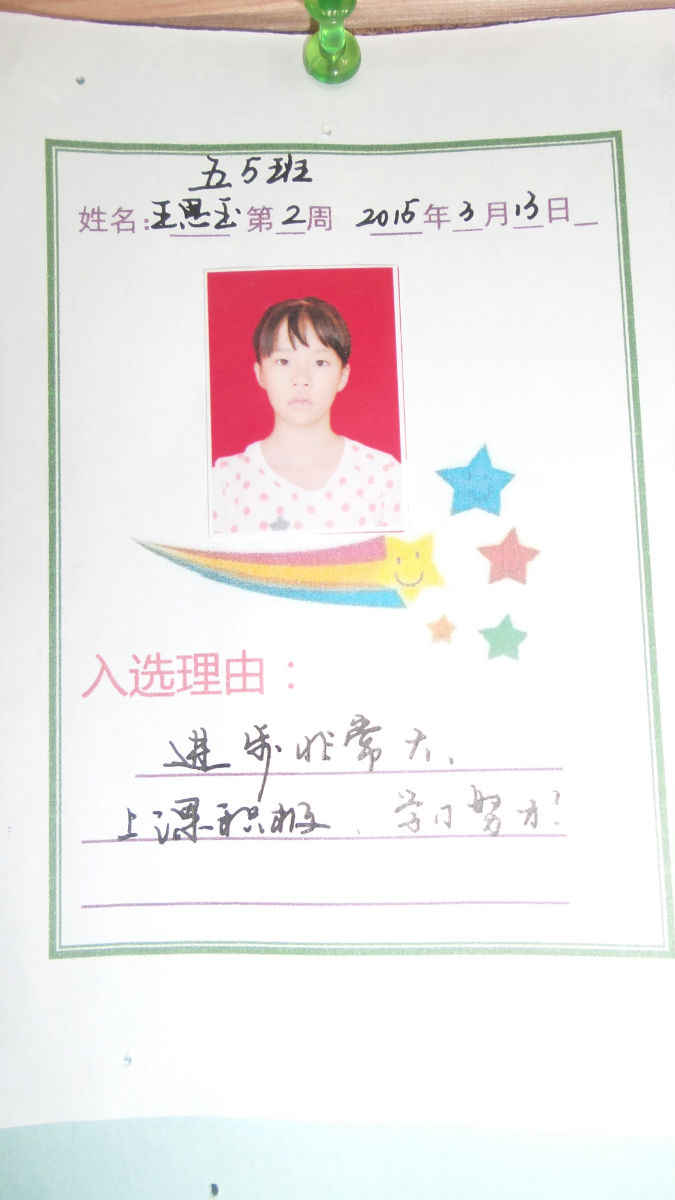 五5班
姓名:王思玉 第2周 2015年3月13日
入选理由：
进步非常大,
上课积极、学习努力!